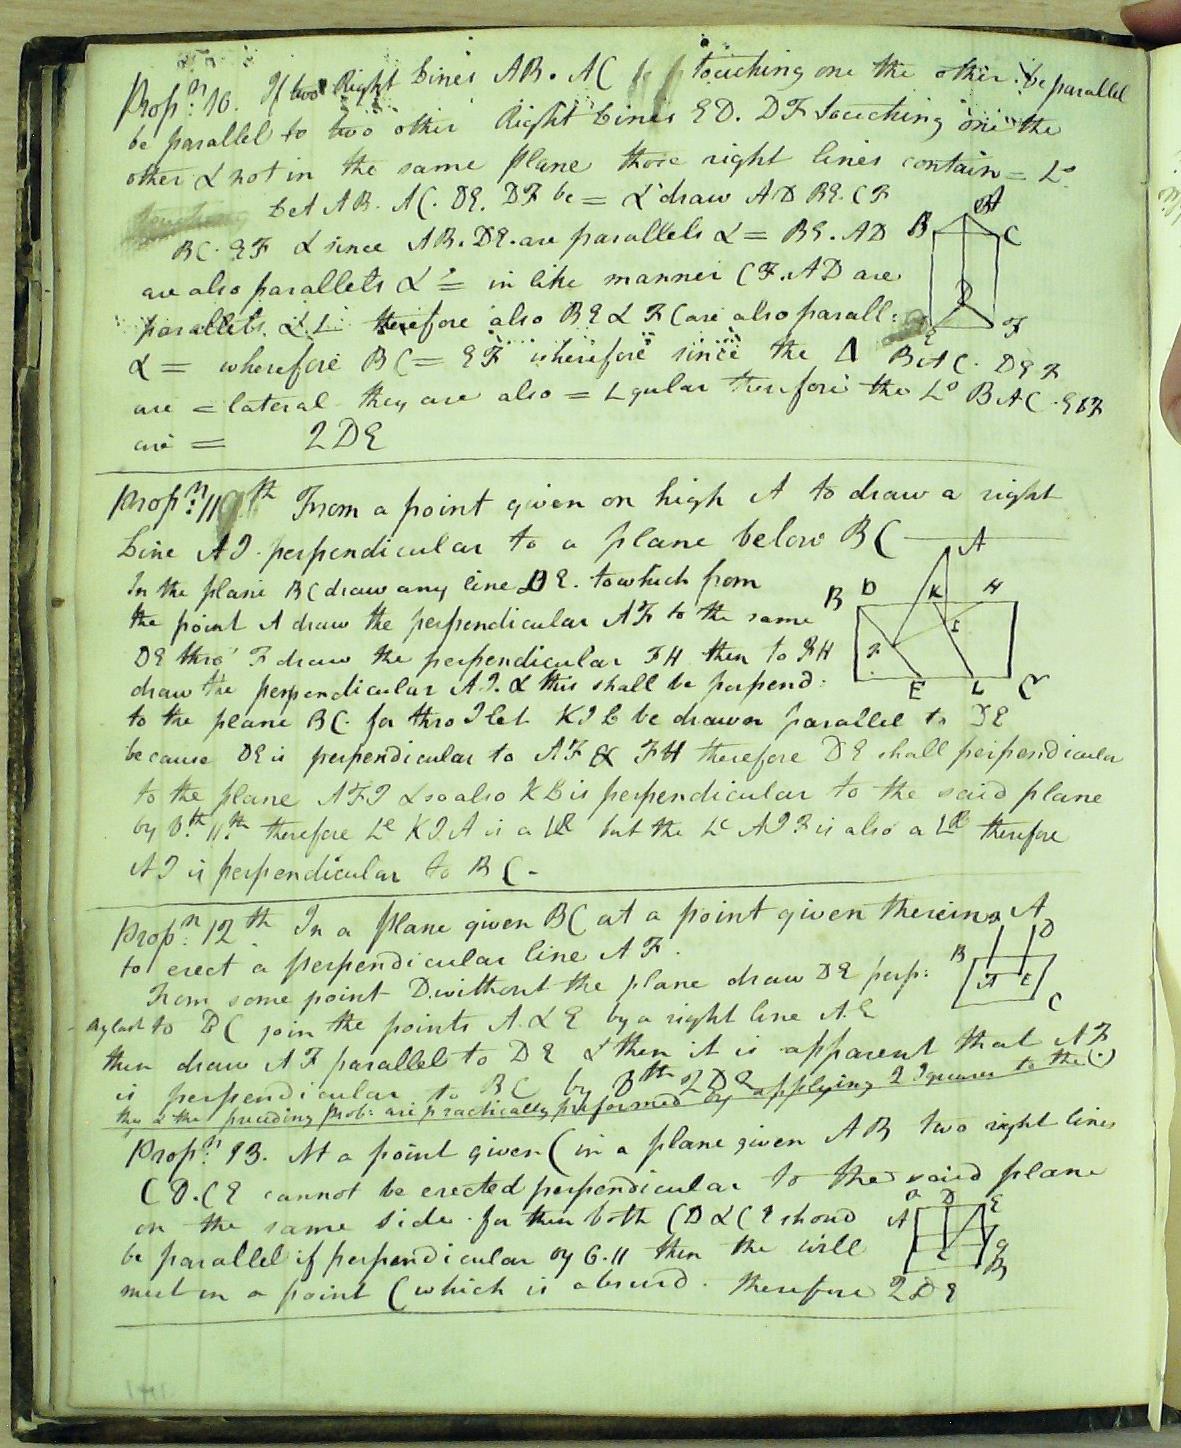 Prop.n 10. If two Right Lines AB. AC touching one the other be parallel
be parallel to two other Right Lines ED. DF touching one the
other & not in the same plane those right lines contain = L.s
Let AB. AC. DE. DF be = & draw AD BE. CF
BC. EF & since AB. DE. are parallels & = BE. AD
are also parallels & = in like manner CF. AD are
parallels & therefore also BE & FC are also parall:
& = wherefore BC = EF wherefore since the Δ BAC. DEF
are = lateral they are also = Lgular therefore the L.s BAC. EDF
are = 2DE
A
B
C
D
E
F
Prop.n 11th From a point given on high A to draw a right
Line AI. perpendicular to a plane below BC
In the plane BC draw any line DE. to which from
the point A draw the perpendicular AF to the same
DE thro' F draw the perpendicular FH then to FH
draw the perpendicular AI. & this shall be perpend:
to the plane BC. for thro I let KIL be drawn parallel to DE
because DE is perpendicular to AF & FH therefore DE shall perpendicular
to the plane AFI & so also KL is perpendicular to the said plane
by 8.th 11.th therefore Le KIA is a LR but the Le AIF is also a LR therefore
AI is perpendicular to BC.
A
B D K H
I
F
E L C
Prop.n 12th In a Plane given BC at a point given therein A
to erect a perpendicular line AF.
From some point D without the plane draw DE perp:
by last to BC join the points A. & E by a right line A.E
then draw AF parallel to DE & then it is apparent that AF
is perpendicular to BC by 8th 2DE
this & the preceding prob: are practically performed by applying 2 Squares to the (.)
D
B
A E
C
Prop.n 13. At a point given C in a plane given AB two right lines
CD. CE cannot be erected perpendicular to the said plane
on the same side. for then both CD & CE shoud
be parallel if perpendicular by 6.11 then the will
meet in a point C which is absurd. therefore 2DE
A D E
C
B